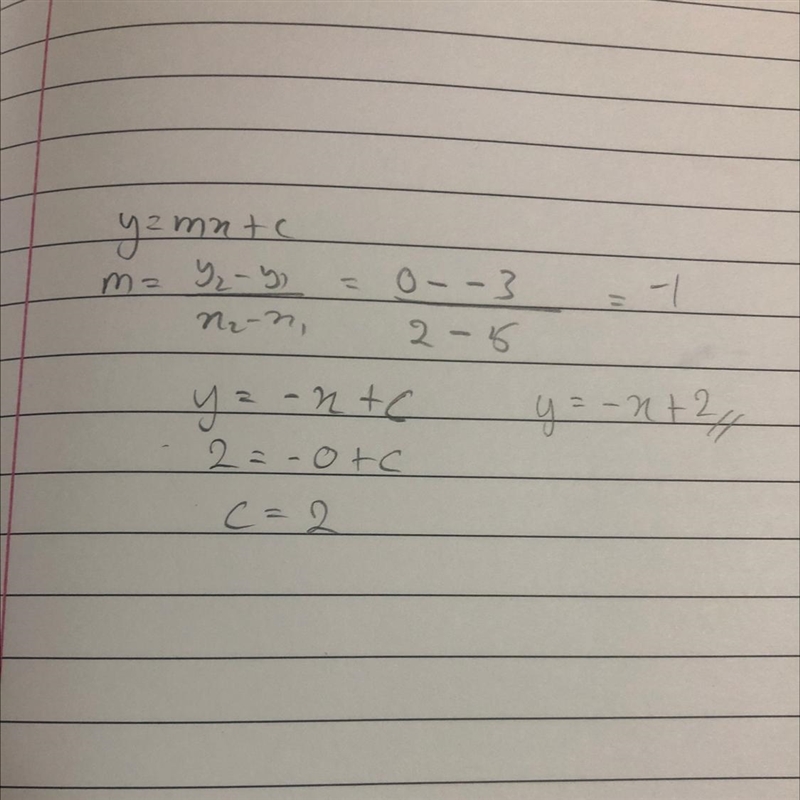 y = mx + c
m = y₂ - y₁ / x₂ - x₁ = 0 - -3 / 2 - 5 = -1
y = -x + c y = -x + 2 //
2 = -0 + c
c = 2